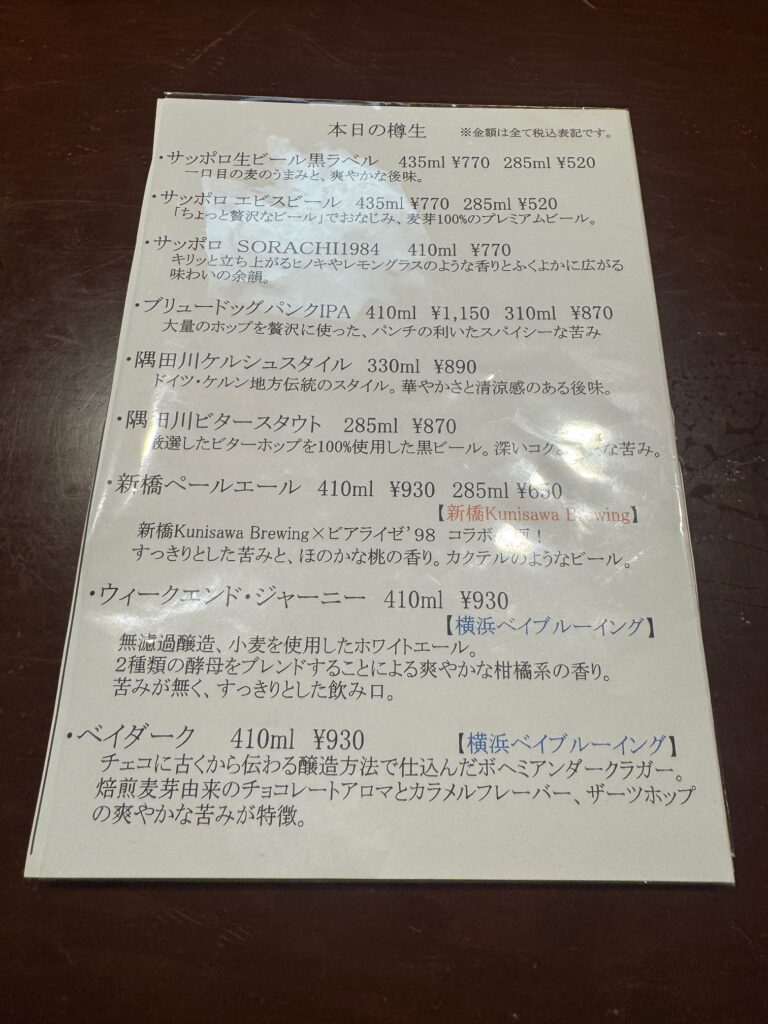 本日の樽生　※金額は全て税込表記です。
・サッポロ生ビール黒ラベル　435ml ¥770　285ml ¥520
一口目の麦のうまみと、爽やかな後味。
・サッポロ エビスビール　435ml ¥770　285ml ¥520
「ちょっと贅沢なビール」でおなじみ、麦芽100%のプレミアムビール。
・サッポロ　SORACHI1984　410ml　¥770
キリッと立ち上がるヒノキやレモングラスのような香りとふくよかに広がる
味わいの余韻。
・ブリュードッグパンクIPA　410ml　¥1,150　310ml　¥870
大量のホップを贅沢に使った、パンチの利いたスパイシーな苦み
・隅田川ケルシュスタイル　330ml　¥890
ドイツ・ケルン地方伝統のスタイル。華やかさと清涼感のある後味。
・隅田川ビタースタウト　285ml　¥870
厳選したビターホップを100%使用した黒ビール。深いコク な苦み。
・新橋ペールエール　410ml　¥930　285ml ¥650
【新橋Kunisawa Brewing】
新橋Kunisawa Brewing×ビアライゼ'98 コラボ ！
すっきりとした苦みと、ほのかな桃の香り。カクテルのようなビール。
・ウィークエンド・ジャーニー　410ml　¥930
【横浜ベイブルーイング】
無濾過醸造、小麦を使用したホワイトエール。
２種類の酵母をブレンドすることによる爽やかな柑橘系の香り。
苦みが無く、すっきりとした飲み口。
・ベイダーク　410ml　¥930　【横浜ベイブルーイング】
チェコに古くから伝わる醸造方法で仕込んだボヘミアンダークラガー。
焙煎麦芽由来のチョコレートアロマとカラメルフレーバー、ザーツホップ
の爽やかな苦みが特徴。